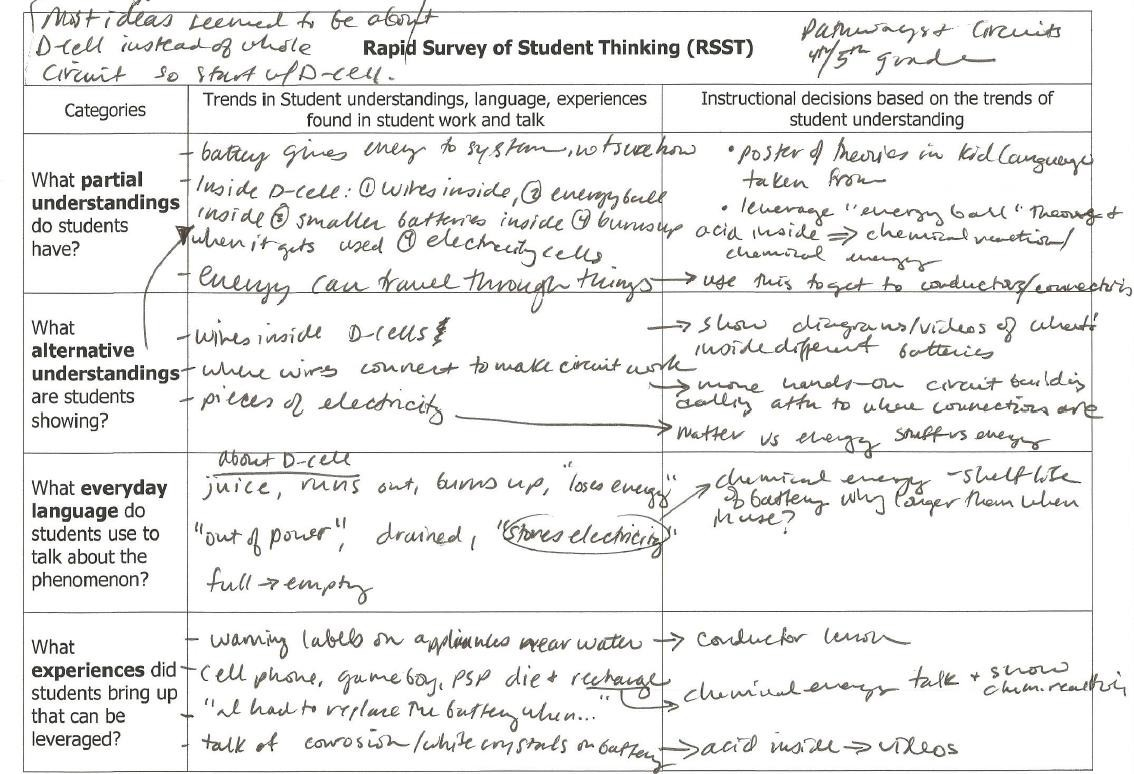 Most ideas seemed to be about
D-cell instead of whole
circuit so start w/ D-cell.
Rapid Survey of Student Thinking (RSST)
Pathways + Circuits
4th/5th grade
Categories
Trends in Student understandings, language, experiences
found in student work and talk
Instructional decisions based on the trends of
student understanding
What partial
understandings
do students
have?
- battery gives energy to system, not sure how
- Inside D-cell: ① wires inside, ② energy ball
inside ③ smaller batteries inside ④ burns up
when it gets used ④ electricity cells
- energy can travel through things
• poster of theories in kid language
taken from
• leverage "energy ball" theory +
acid inside ⇒ chemical reaction/
chemical energy
→ use this to get to conductors/connectors
What
alternative
understandings
are students
showing?
- wires inside D-cells
- where wires connect to make circuit work
- pieces of electricity
→ show diagrams/videos of what's
inside different batteries
→ more hands-on circuit building
calling attn to where connections are
→ matter vs energy stuff vs energy
What everyday
language do
students use to
talk about the
phenomenon?
about D-cell
juice, runs out, burns up, "loses energy"
"out of power", drained, "stores electricity"
full → empty
chemical energy - shelf life
of battery why longer than when
in use?
What
experiences did
students bring up
that can be
leveraged?
- warning labels on appliances near water
- cell phone, gameboy, PSP die + recharge
- "I had to replace the battery when..."
- talk of corrosion/white crystals on battery
→ conductor lesson
→ chemical energy talk + show
chem. reactions
→ acid inside → videos